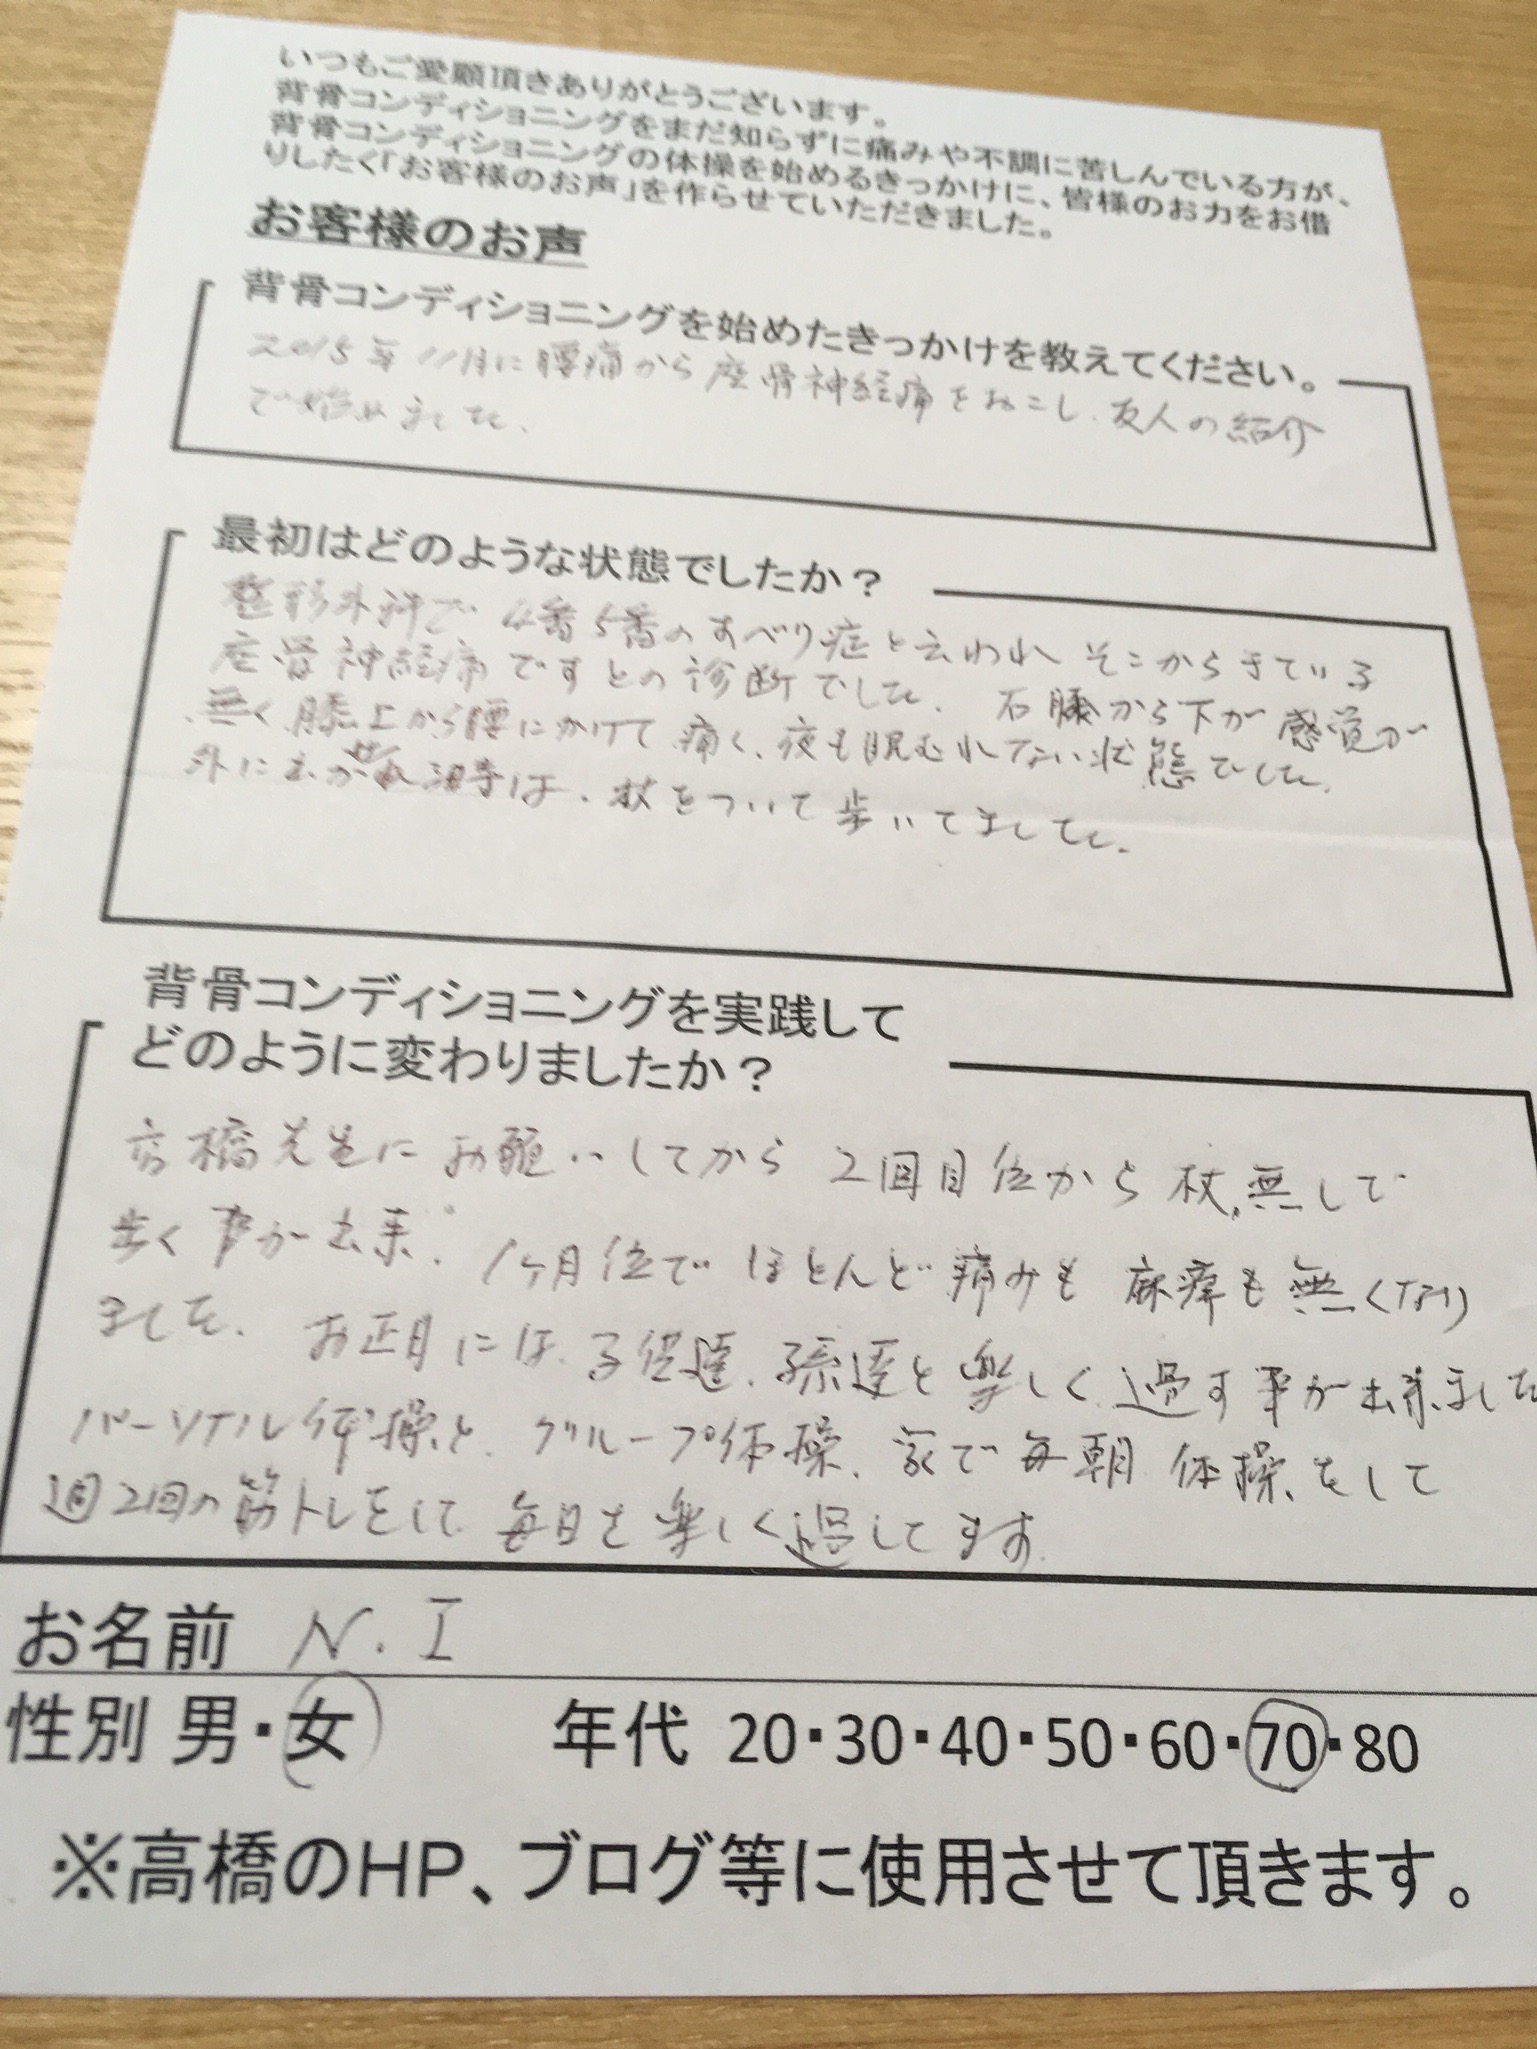 いつもご愛顧頂きありがとうございます。
背骨コンディショニングをまだ知らずに痛みや不調に苦しんでいる方が、
背骨コンディショニングの体操を始めるきっかけに、皆様のお力をお借
りしたく「お客様のお声」を作らせていただきました。
お客様のお声
背骨コンディショニングを始めたきっかけを教えてください。
2015年11月に腰痛から座骨神経痛をおこし、友人の紹介
で始めました。
最初はどのような状態でしたか？
整形外科で4番5番のすべり症と云われそこからきている
座骨神経痛ですとの診断でした。右膝から下が感覚が
無く膝上から腰にかけて痛く、夜も眠むれない状態でした。
外に出かける時は、杖をついて歩いてました。
背骨コンディショニングを実践して
どのように変わりましたか？
高橋先生にお願いしてから2回目位から杖無しで
歩く事が出来。1ヶ月位でほとんど痛みも麻痺も無くなり
ました。お正月には、子供達、孫達と楽しく過す事が出来ました
パーソナル体操と、グループ体操、家で毎朝体操をして
週2回の筋トレをして毎日を楽しく過してます。
お名前 N.I
性別 男・女 年代 20・30・40・50・60・70・80
※高橋のHP、ブログ等に使用させて頂きます。